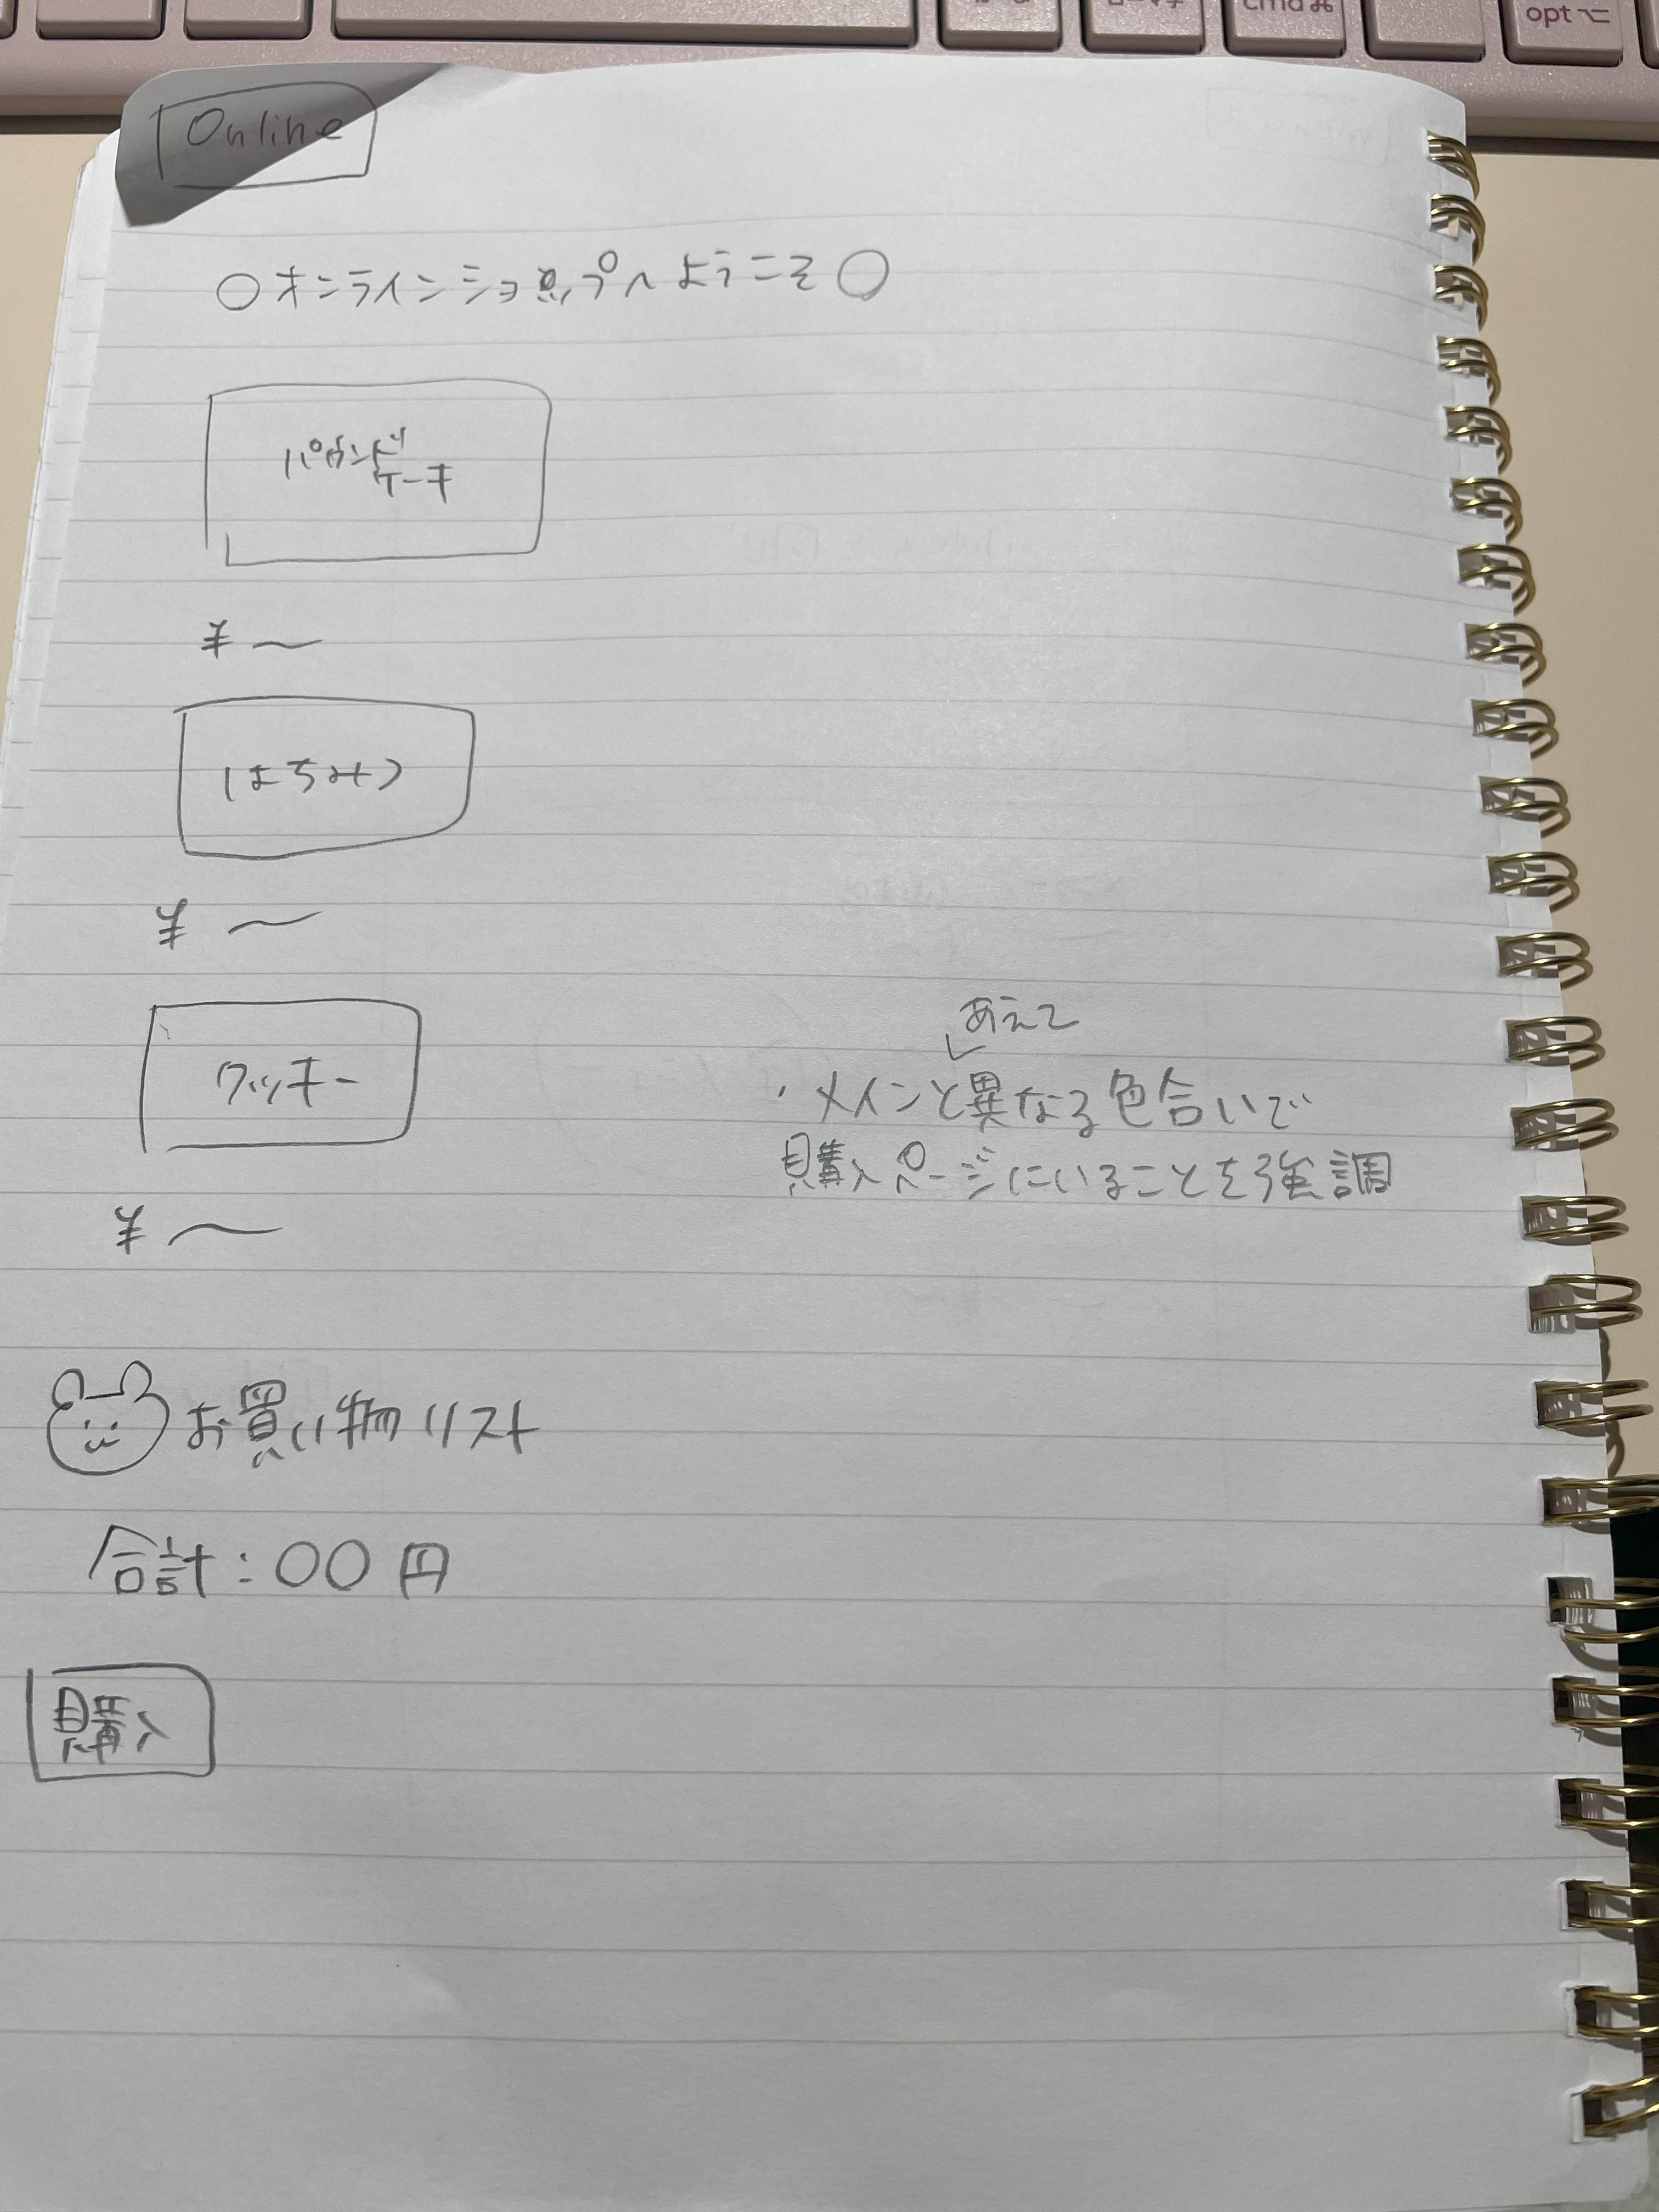 cmd ⌘
opt ⌥
Online
○オンラインショップへようこそ○
パウンド
ケーキ
¥ 〜
はちみつ
¥ 〜
クッキー
¥ 〜
あえて
・メインと異なる色合いで
購入ページにいることを強調
お買い物リスト
合計:○○円
購入